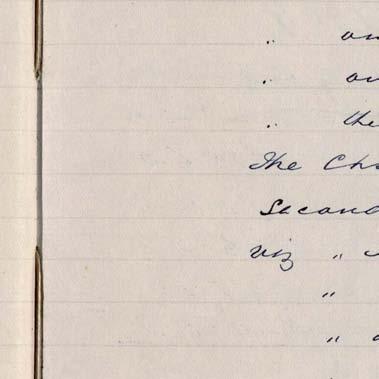 "
"
" the
The Ch
Second
viz "
"
"